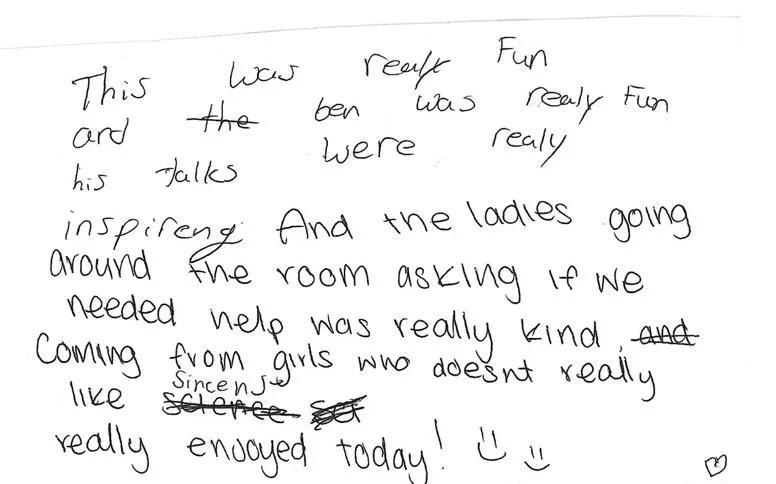 This was realy Fun
and the ben was realy Fun
his talks were realy
inspireng And the ladies going
around the room asking if we
needed help was really kind, and
Coming from girls who doesnt really
like science
really enjoyed today!